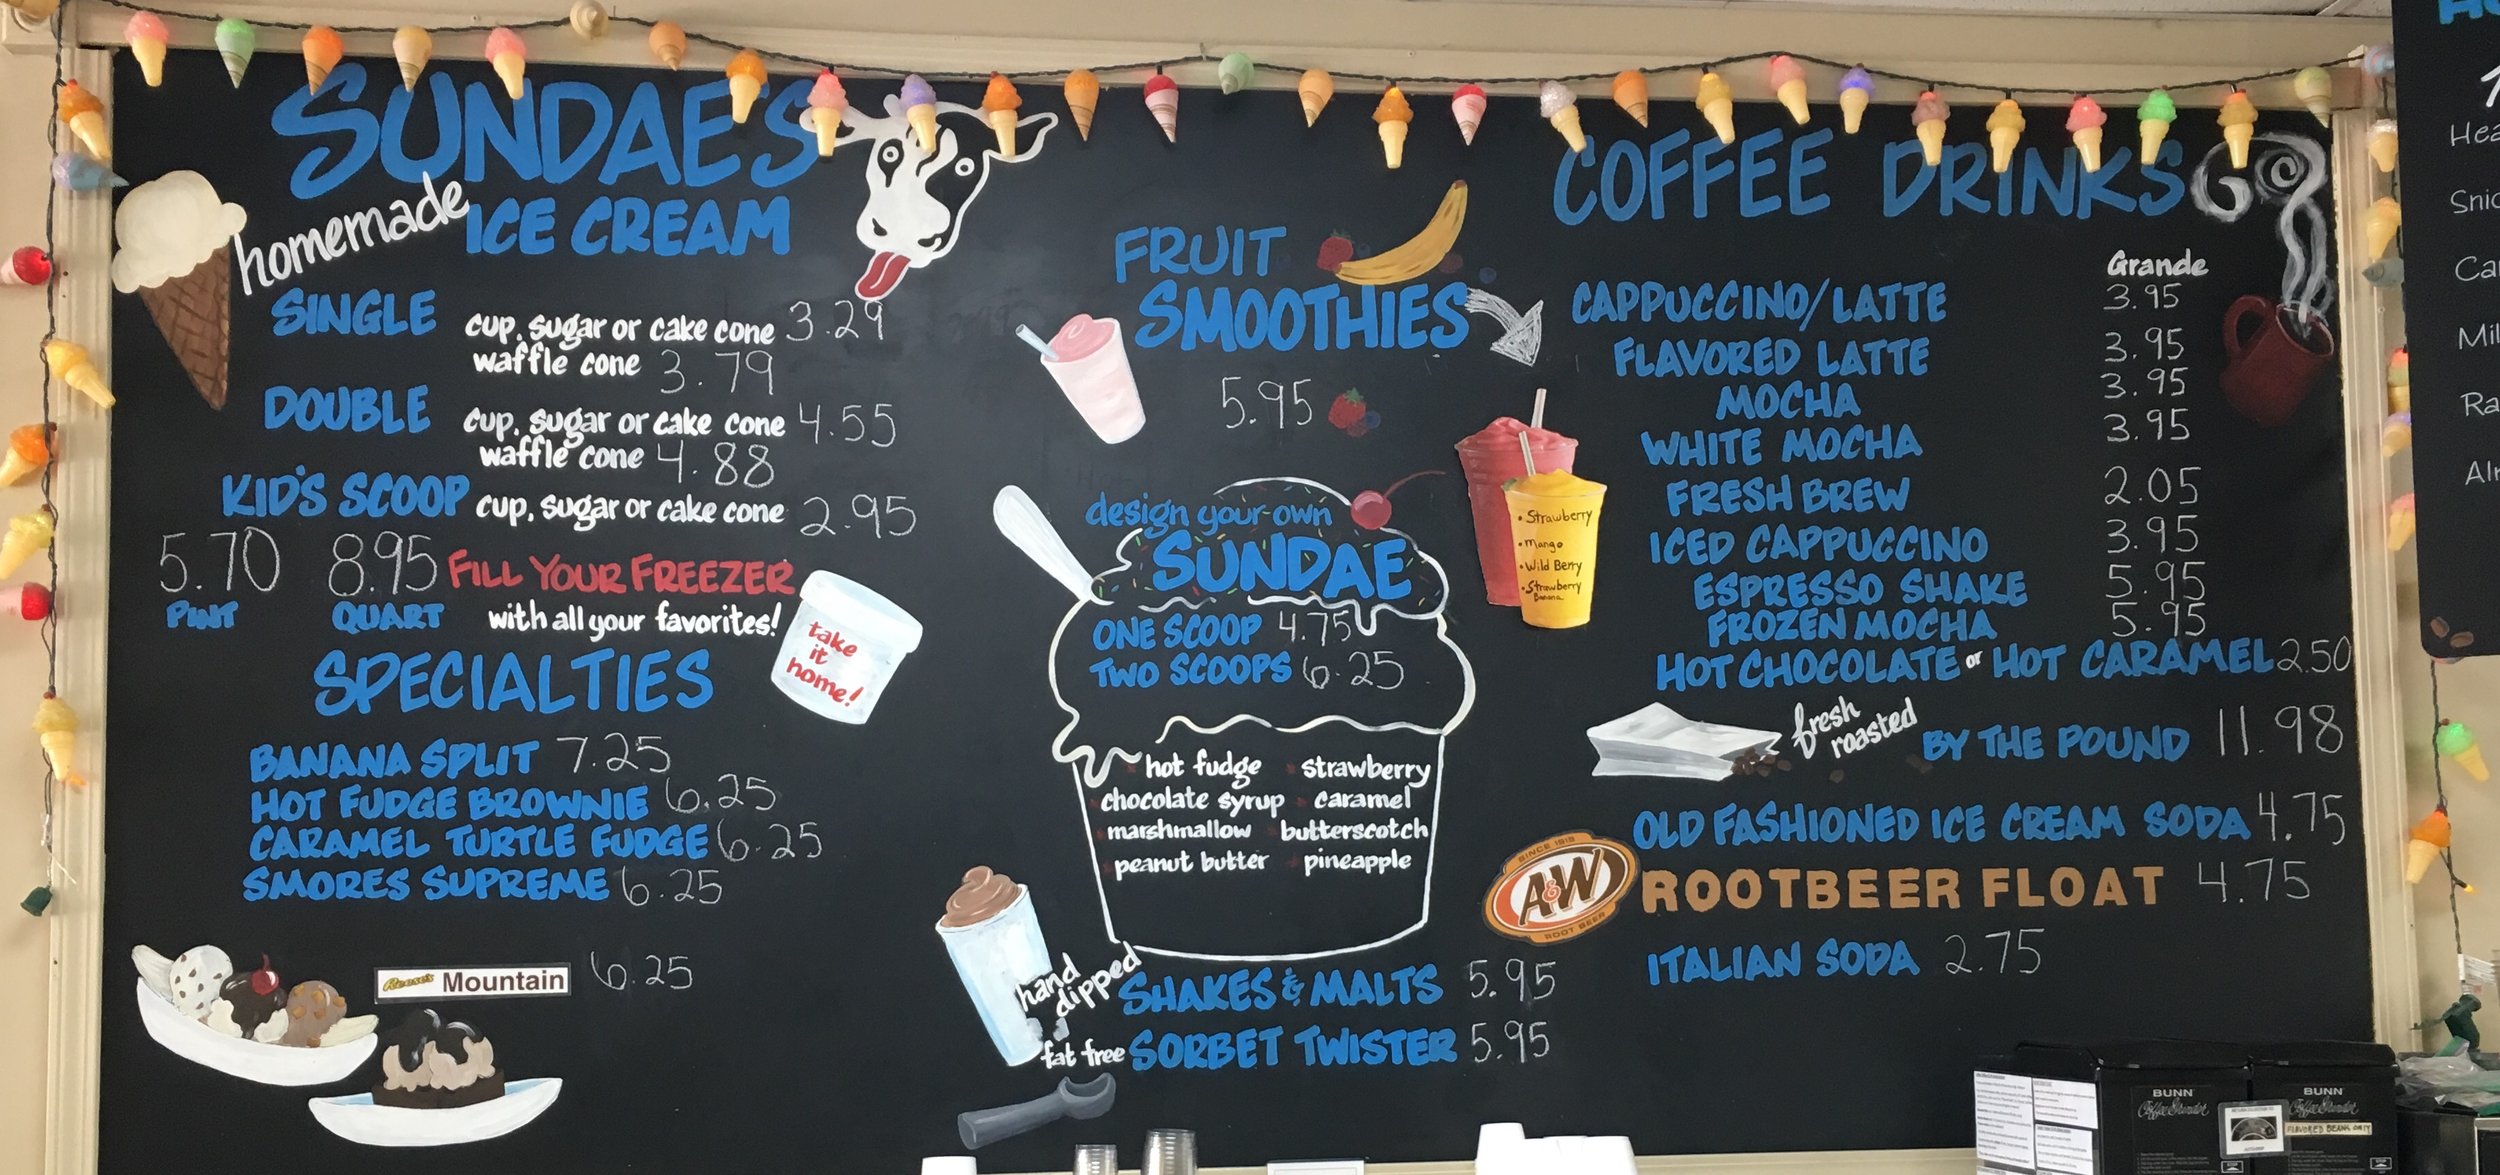 SUNDAES
homemade
ICE CREAM
SINGLE cup, sugar or cake cone 3.29
waffle cone 3.79
DOUBLE cup, sugar or cake cone 4.55
waffle cone 4.88
KID'S SCOOP cup, sugar or cake cone 2.95
5.70 8.95 FILL YOUR FREEZER
PINT QUART with all your favorites!
take
it
home!
SPECIALTIES
BANANA SPLIT 7.25
HOT FUDGE BROWNIE 6.25
CARAMEL TURTLE FUDGE 6.25
SMORES SUPREME 6.25
Reese's Mountain 6.25
FRUIT
SMOOTHIES
5.95
• Strawberry
• Mango
• Wild Berry
• Strawberry
Banana
design your own
SUNDAE
ONE SCOOP 4.75
TWO SCOOPS 6.25
hot fudge strawberry
chocolate syrup caramel
marshmallow butterscotch
peanut butter pineapple
hand
dipped
SHAKES & MALTS 5.95
fat free SORBET TWISTER 5.95
COFFEE DRINKS
Grande
CAPPUCCINO/LATTE 3.95
FLAVORED LATTE 3.95
MOCHA 3.95
WHITE MOCHA 3.95
FRESH BREW 2.05
ICED CAPPUCCINO 3.95
ESPRESSO SHAKE 5.95
FROZEN MOCHA 5.95
HOT CHOCOLATE or HOT CARAMEL 2.50
fresh
roasted
BY THE POUND 11.98
OLD FASHIONED ICE CREAM SODA 4.75
SINCE 1919
A&W
ROOT BEER
ROOTBEER FLOAT 4.75
ITALIAN SODA 2.75
BUNN
BUNN
FLAVORED BEANS ONLY